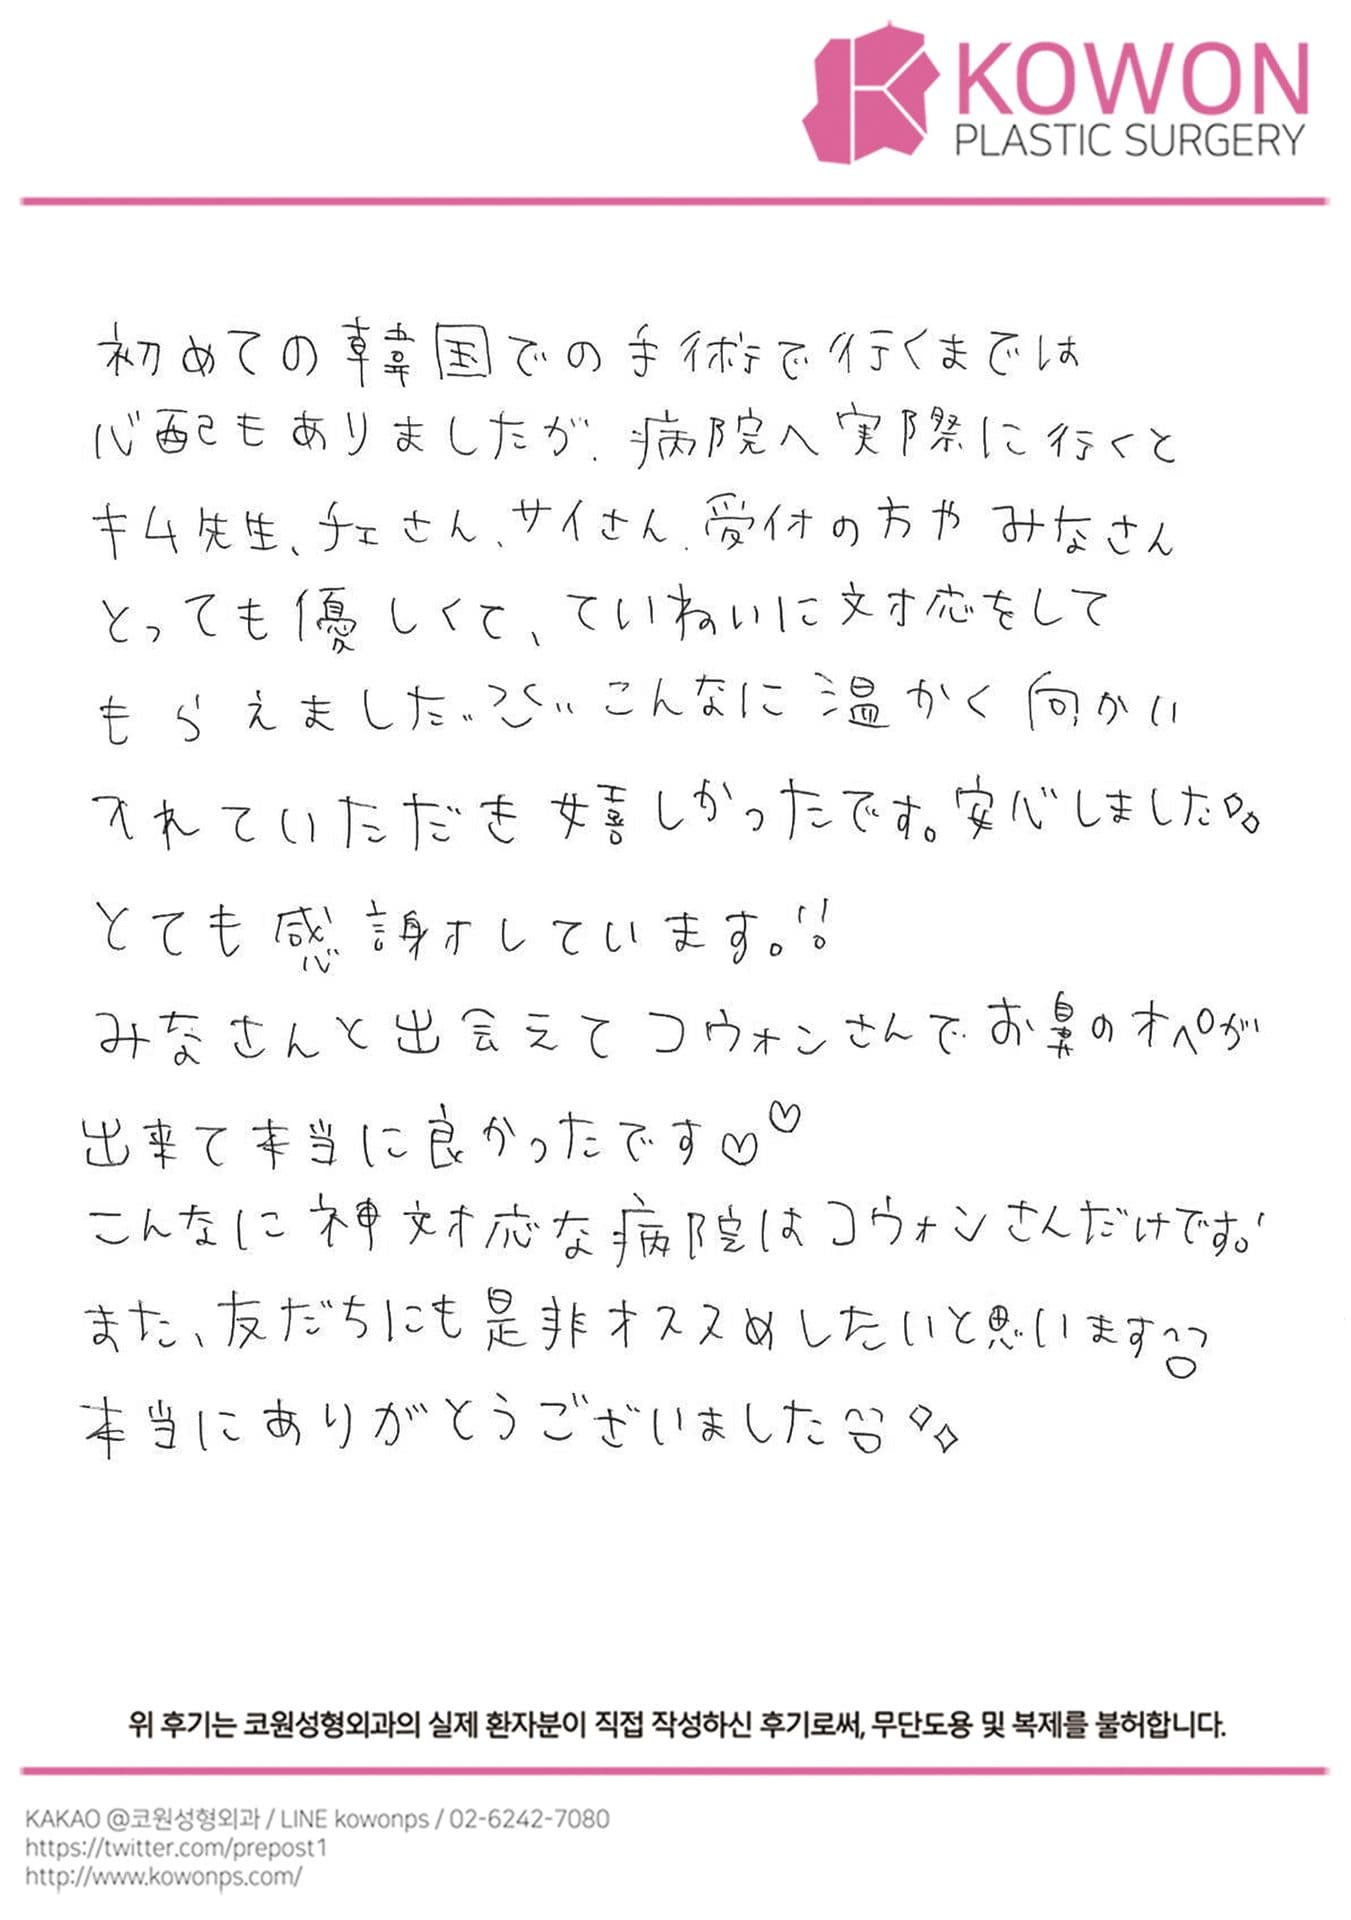 KOWON
PLASTIC SURGERY
初めての韓国での手術で行くまでは
心配もありましたが、病院へ実際に行くと
キム先生、チェさん、サイさん、受付の方やみなさん
とっても優しくて、ていねいに対応をして
もらえました こんなに温かく向かい
入れていただき嬉しかったです。安心しました
とても感謝しています。!!
みなさんと出会えてコウォンさんでお鼻のオペが
出来て本当に良かったです♡♡
こんなに神対応な病院はコウォンさんだけです!
また、友だちにも是非オススメしたいと思います
本当にありがとうございました
위 후기는 코원성형외과의 실제 환자분이 직접 작성하신 후기로써, 무단도용 및 복제를 불허합니다.
KAKAO @코원성형외과 / LINE kowonps / 02-6242-7080
https://twitter.com/prepost1
http://www.kowonps.com/